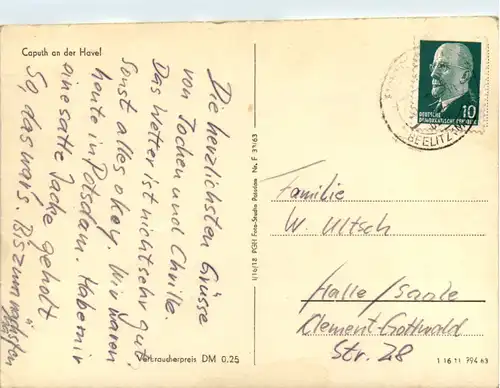 Caputh an der Havel
Die herzlichsten Grüsse
von Jochen und
Das Wetter ist nicht sehr gut
sonst alles okay. Wir waren
heute in Potsdam. Habe mir
eine satte Jacke geholt
So, das war's. Bis zum nächsten
Verbraucherpreis DM 0,25
I/16/18 PGH Foto-Studio Potsdam Nr. F 39/63
10
DEUTSCHE
DEMOKRATISCHE REPUBLIK
BEELITZ
Familie
W. Ultsch
Halle / Saale
Clement-Gottwald
Str. 28
1 16 11 794 63